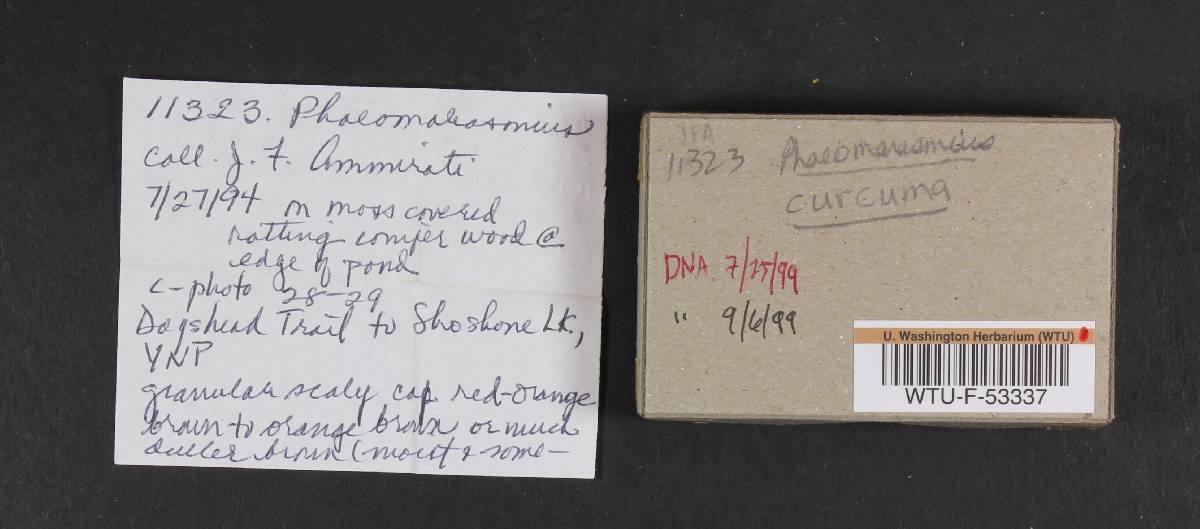 11323. Phaeomarasmius
Coll. J. F. Ammirati
7/27/94 on moss covered
rotting conifer wood @
edge of pond
c-photo 28-29
Dogshead Trail to Shoshone Lk.,
YNP
granular scaly cap red-orange
brown to orange brown or much
duller brown (moist & some-
JFA
11323 Phaeomarasmius
curcuma
DNA 7/25/99
" 9/6/99
U. Washington Herbarium (WTU)
WTU-F-53337